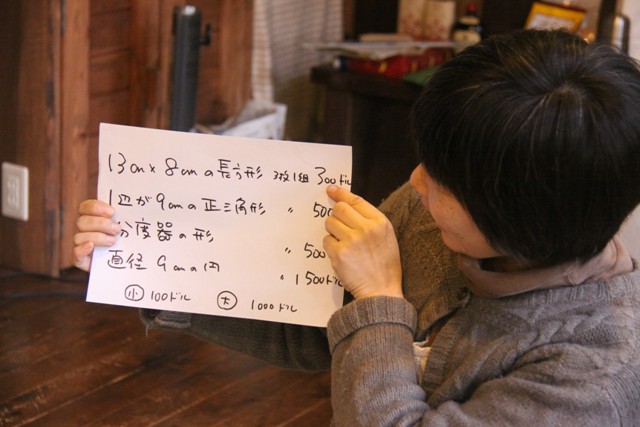 13cm×8cmの長方形 3枚1組 300ドル
1辺が9cmの正三角形 〃 500
分度器の形 〃 500
直径 9cmの円 〃 1500ドル
小 100ドル 大 1000ドル